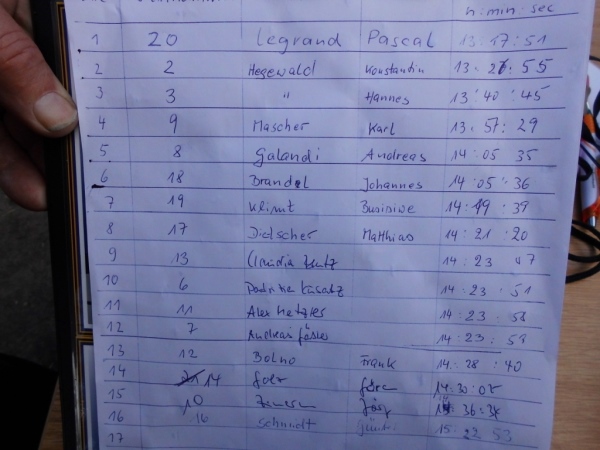 h : min : sec
1 20 Legrand Pascal 13:17:51
2 2 Hegewald Konstantin 13:26:55
3 3 " Hannes 13:40:45
4 9 Mascher Karl 13:57:29
5 8 Galandi Andreas 14:05 35
6 18 Brandel Johannes 14:05:36
7 19 Klimt 14:19:39
8 17 Dietscher Matthias 14:21:20
9 13 Claudia 14:23 47
10 6 14:23:51
11 11 Alex Hetzler 14:23:58
12 7 Andreas 14:23:59
13 12 Bolno Frank 14:28:40
14 14 14:30:05
15 10 Jörg 36
16 16 Schmidt 15:22 53
17